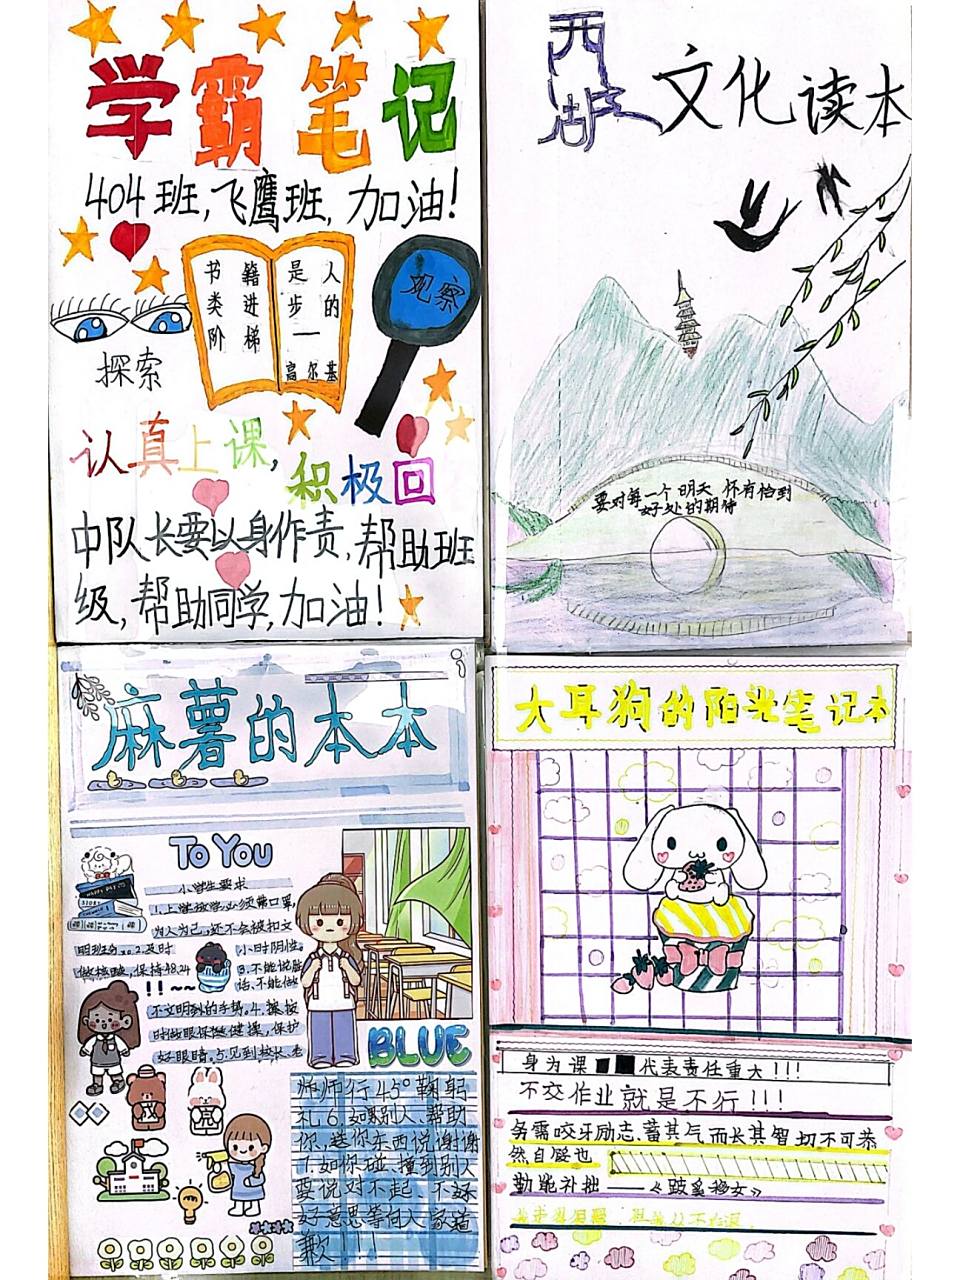 学霸笔记
404班，飞鹰班，加油！
书籍是人
类进步的
阶梯——
高尔基
观察
探索
认真上课，积极回
中队长要以身作责，帮助班
级，帮助同学，加油！
西湖文化读本
要对每一个明天怀有恰到
好处的期待
麻薯的本本
TO YOU
小学生要求
1.上学放学必须带口罩，
为人为己，还不会被扣文
明班分。2.及时
做核酸，保持48.24
小时阴性。
3.不能说脏
话、不能做
!!~~
不文明的手势。4.
时做眼保健操，保护
好眼睛。5.见到校长、老
BLUE
师师行45°鞠躬
礼6.如果别人帮助
你、送你东西说谢谢
7.如你碰、撞到别人
要说对不起、不
好意思等向人家道
歉！！！
大耳狗的阳光笔记本
身为课代表责任重大！！！
不交作业就是不行！！！
务需咬牙励志、蓄其气而长其智切不可恭
然自馁也
勤能补拙——《跋